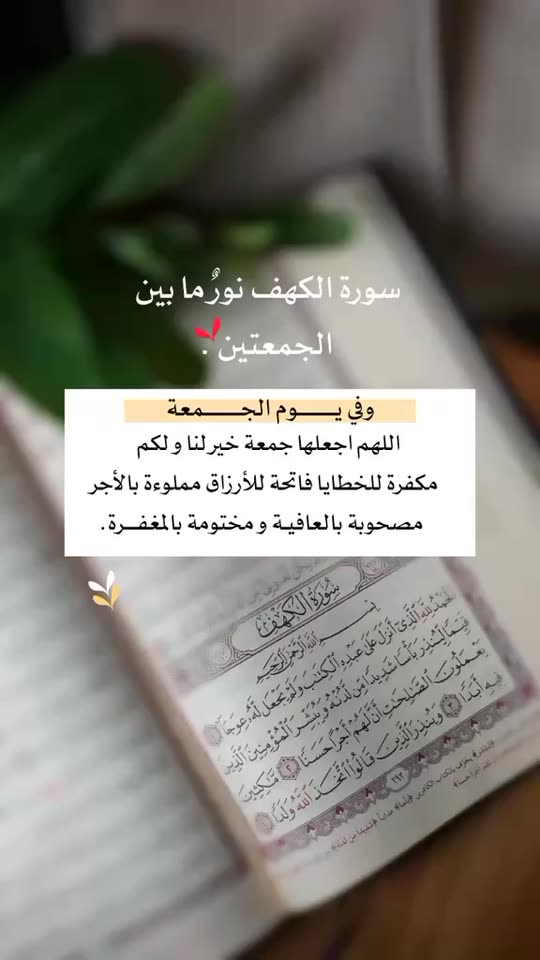 سورة الكهف نورٌ ما بين
الجمعتين .
وفي يـــــوم الجـــــمعة
اللهم اجعلها جمعة خير لنا و لكم
مكفرة للخطايا فاتحة للأرزاق مملوءة بالأجر
مصحوبة بالعافية و مختومة بالمغفــرة .
سُورَةُ الكَهْفِ
بِسْمِ اللَّهِ الرَّحْمَٰنِ الرَّحِيمِ
الْحَمْدُ لِلَّهِ الَّذِي أَنزَلَ عَلَىٰ عَبْدِهِ الْكِتَابَ وَلَمْ يَجْعَل لَّهُ عِوَجًا ١
قَيِّمًا لِّيُنذِرَ بَأْسًا شَدِيدًا مِّن لَّدُنْهُ وَيُبَشِّرَ الْمُؤْمِنِينَ الَّذِينَ
يَعْمَلُونَ الصَّالِحَاتِ أَنَّ لَهُمْ أَجْرًا حَسَنًا ٢ مَّاكِثِينَ
فِيهِ أَبَدًا ٣ وَيُنذِرَ الَّذِينَ قَالُوا اتَّخَذَ اللَّهُ وَلَدًا ٤
٢٩٣